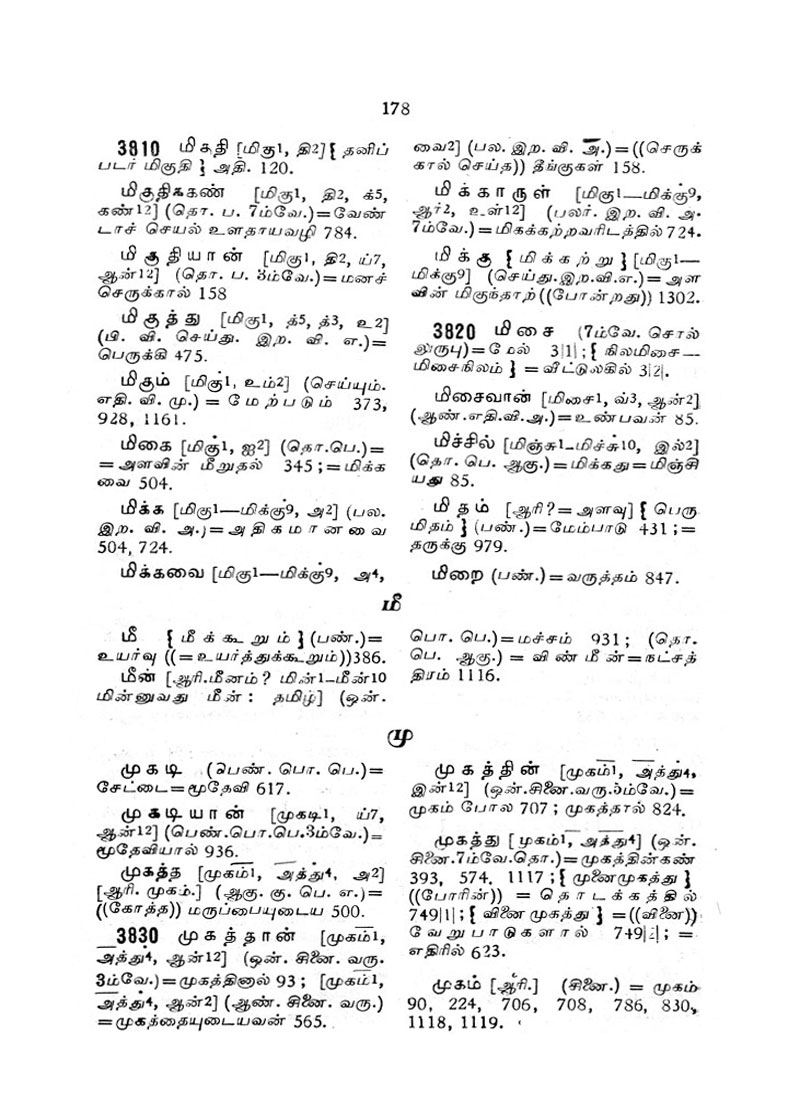 178
3810 மிகதி [மிகு1, தி2] { தனிப்
படர் மிகுதி } அதி. 120.
மிகுதிக்கண் [மிகு1, தி2, க்5,
கண்12] (தொ. ப. 7ம்வே.)=வேண்
டாச் செயல் உளதாயவழி 784.
மிகுதியான் [மிகு1, தி2, ய்7,
ஆன்12] (தொ. ப. 3ம்வே.)=மனச்
செருக்கால் 158
மிகுத்து [மிகு1, த்5, த்3, உ2]
(பி. வி. செய்து. இற. வி. எ.)=
பெருக்கி 475.
மிகும் [மிகு1, உம்2] (செய்யும்.
எதி. வி. மு.) = மேற்படும் 373,
928, 1161.
மிகை [மிகு1, ஐ2] (தொ.பெ.)=
=அளவின் மீறுதல் 345 ;=மிக்க
வை 504.
மிக்க [மிகு1—மிக்கு9, அ2] (பல.
இற. வி. அ.)=அதிகமானவை
504, 724.
மிக்கவை [மிகு1—மிக்கு9, அ4,
வை2] (பல. இற. வி. அ.)=((செருக்
கால் செய்த)) தீங்குகள் 158.
மிக்காருள் [மிகு1—மிக்கு9,
ஆர்2, உள்12] (பலர். இற. வி. அ.
7ம்வே.)=மிகக்கற்றவரிடத்தில் 724.
மிக்கு { மிக்கற்று } [மிகு1—
மிக்கு9] (செய்து.இற.வி.எ.)=அள
வின் மிகுந்தாற் ((போன்றது)) 1302.
3820 மிசை (7ம்வே. சொல்
லுருபு)=மேல் 3|1| ; { நிலமிசை—
மிசைநிலம் } = வீட்டுலகில் 3|2|.
மிசைவான் [மிசை1, வ்3, ஆன்2]
(ஆண்.எதி.வி.அ.)=உண்பவன் 85.
மிச்சில் [மிஞ்சு1-மிச்சு10, இல்2]
(தொ. பெ. ஆகு.)=மிக்கது=மிஞ்சி
யது 85.
மிதம் [ஆரி?=அளவு] { பெரு
மிதம் } (பண்.)=மேம்பாடு 431 ;=
தருக்கு 979.
மிறை (பண்.)=வருத்தம் 847.
மீ
மீ { மீக்கூறும் } (பண்.)=
உயர்வு ((=உயர்த்துக்கூறும்))386.
மீன் [ஆரி.மீனம்? மின்1-மீன்10
மின்னுவது மீன் : தமிழ்] (ஒன்.
பொ. பெ.)=மச்சம் 931 ; (தொ.
பெ. ஆகு.) = விண்மீன்=நட்சத்
திரம் 1116.
மு
முகடி (பெண். பொ. பெ.)=
சேட்டை=மூதேவி 617.
முகடியான் [முகடி1, ய்7,
ஆன்12] (பெண்.பொ.பெ.3ம்வே.)=
மூதேவியால் 936.
முகத்த [முகம்1, அத்து4, அ2]
[ஆரி. முகம்.] (ஆகு. கு. பெ. எ.)=
((கோத்த)) மருப்பையுடைய 500.
3830 முகத்தான் [முகம்1,
அத்து4, ஆன்12] (ஒன். சினை. வரு.
3ம்வே.)=முகத்தினால் 93 ; [முகம்1,
அத்து4, ஆன்2] (ஆண். சினை. வரு.)
=முகத்தையுடையவன் 565.
முகத்தின் [முகம்1, அத்து4,
இன்12] (ஒன்.சினை.வரு.3ம்வே.)=
முகம் போல 707 ; முகத்தால் 824.
முகத்து [முகம்1, அத்து4] (ஒன்.
சினை.7ம்வே.தொ.)=முகத்தின்கண்
393, 574, 1117 ; { முனைமுகத்து }
((போரின்)) = தொடக்கத்தில்
749|1| ; { வினைமுகத்து } =((வினை))
வேறுபாடுகளால் 749|2| ; =
எதிரில் 623.
முகம் [ஆரி.] (சினை.) = முகம்
90, 224, 706, 708, 786, 830,
1118, 1119.